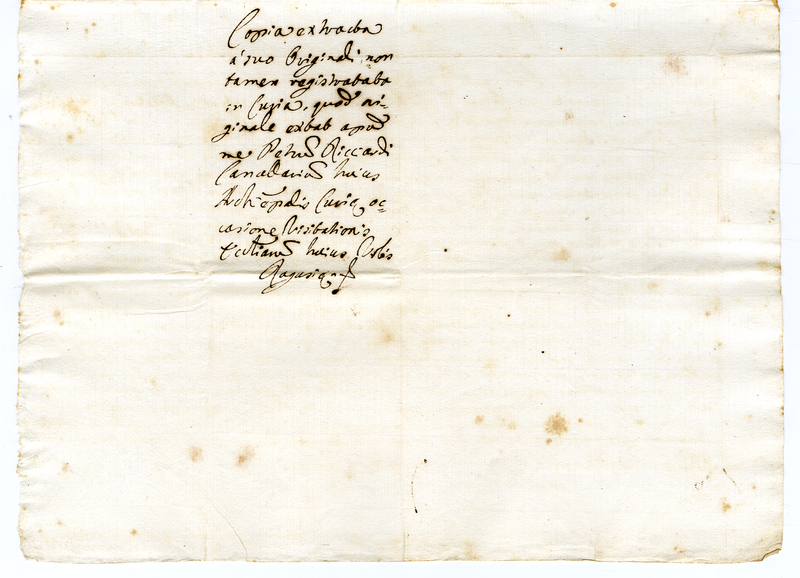 Copia extracta
à suo Originali non
tamen registrataba
in Curia, quod ori-
ginale extat apud
me Petrus Riccardi
Cancellarius huius
Archiepalis Curię oc-
casione Visitationis
Eccliarum huius Orbis
Ragusię